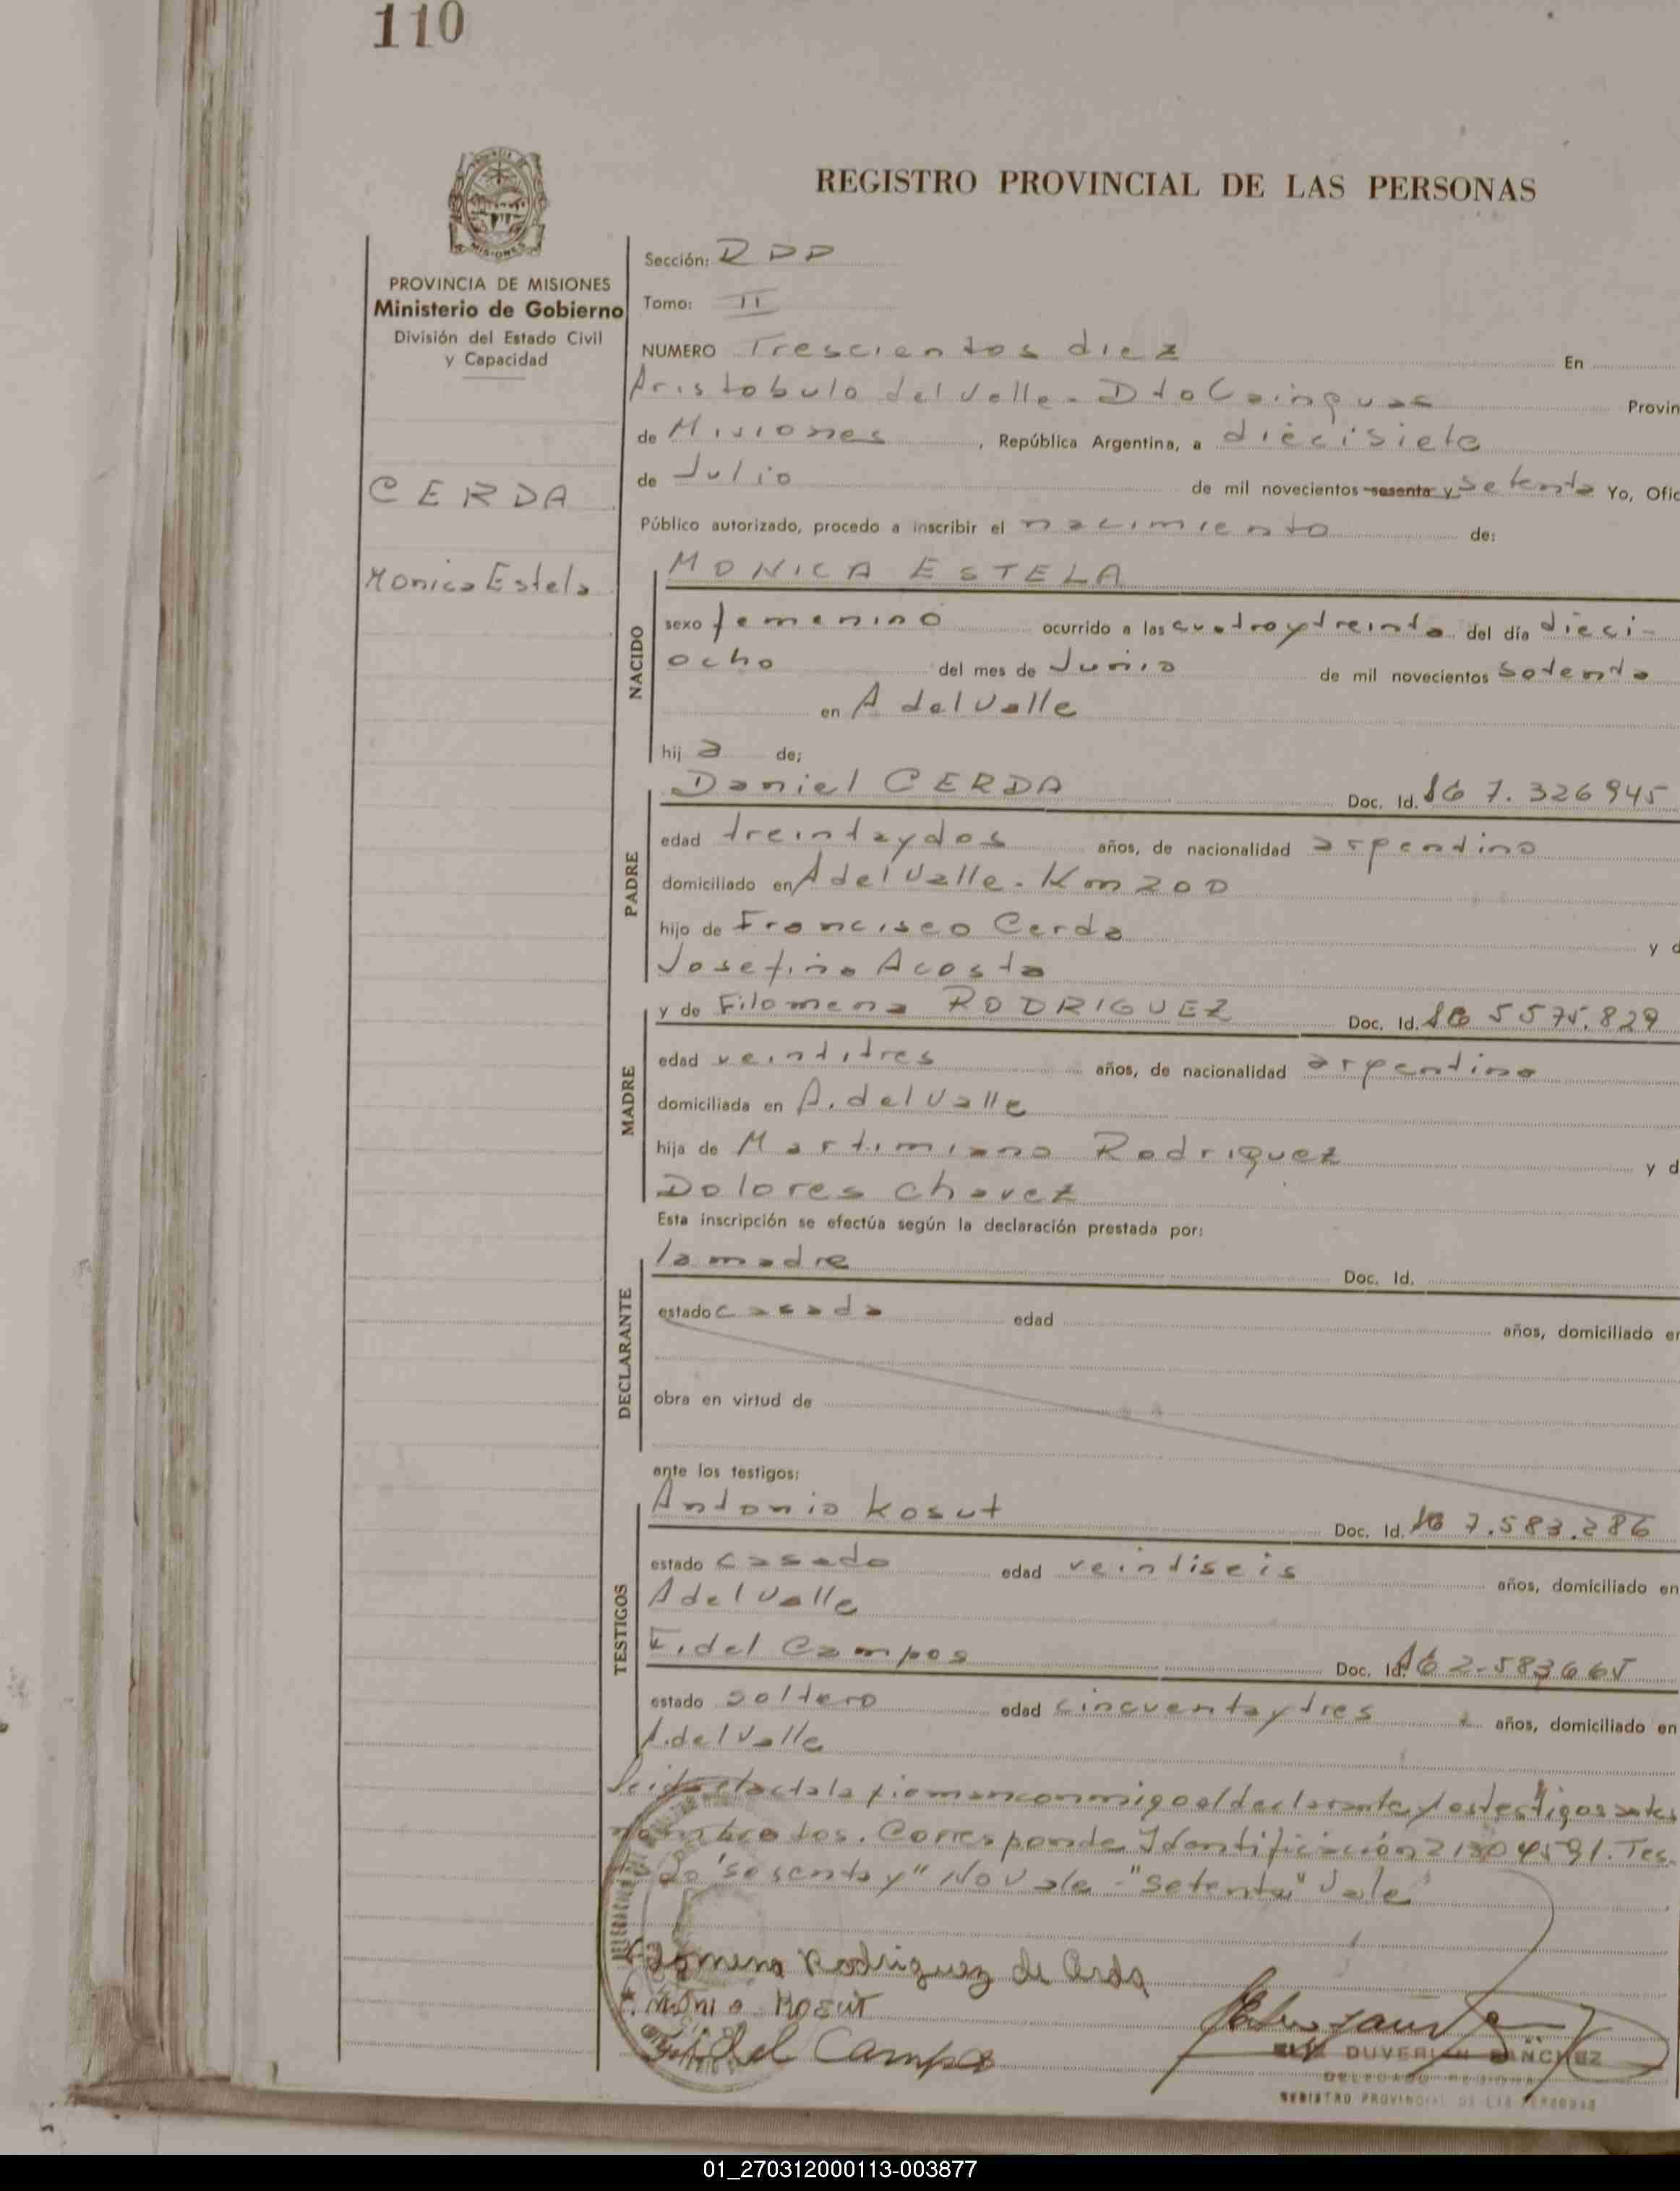 110
REGISTRO PROVINCIAL DE LAS PERSONAS
MISIONES
PROVINCIA DE MISIONES
Ministerio de Gobierno
División del Estado Civil
y Capacidad
CERDA
Monica Estela
Sección: RDD
Tomo: II
NUMERO Trescientos diez En
Aristobulo del Valle - Dto Cainguas Provin
de Misiones, República Argentina, a diecisiete
de Julio de mil novecientos sesenta y Setenta Yo, Ofic
Público autorizado, procedo a inscribir el nacimiento de:
NACIDO
MONICA ESTELA
sexo femenino ocurrido a las cuatro y treinta del día dieci-
ocho del mes de Junio de mil novecientos setenta
en A del Valle
hij a de;
PADRE
Daniel CERDA Doc. Id. 7.326945
edad treinta y dos años, de nacionalidad argentino
domiciliado en A del Valle - Km 200
hijo de Francisco Cerda y d
Josefina Acosta
MADRE
y de Filomena RODRIGUEZ Doc. Id. 5575.829
edad veintitres años, de nacionalidad argentina
domiciliada en A. del Valle
hija de Martimiano Rodriguez y d
Dolores Chavez
Esta inscripción se efectúa según la declaración prestada por:
DECLARANTE
la madre Doc. Id.
estado casada edad años, domiciliado en
obra en virtud de
ante los testigos:
TESTIGOS
Antonio Kosut Doc. Id. 7.583.286
estado casado edad veintiseis años, domiciliado en
A del Valle
Fidel Campos Doc. Id. 2.583665
estado soltero edad cincuenta y tres años, domiciliado en
A. del Valle
Leida el acta la firman conmigo el declarante y los testigos antes
nombrados. Corresponde Identificación 21304591. Tes-
do "sesenta y" No Vale - "Setenta" Vale
Filomena Rodriguez de Cerda
Antonio Kosut
Fidel Campos
DUVERLIN SANCHEZ
DELEGADO REGIONAL
REGISTRO PROVINCIAL DE LAS PERSONAS
01_270312000113-003877